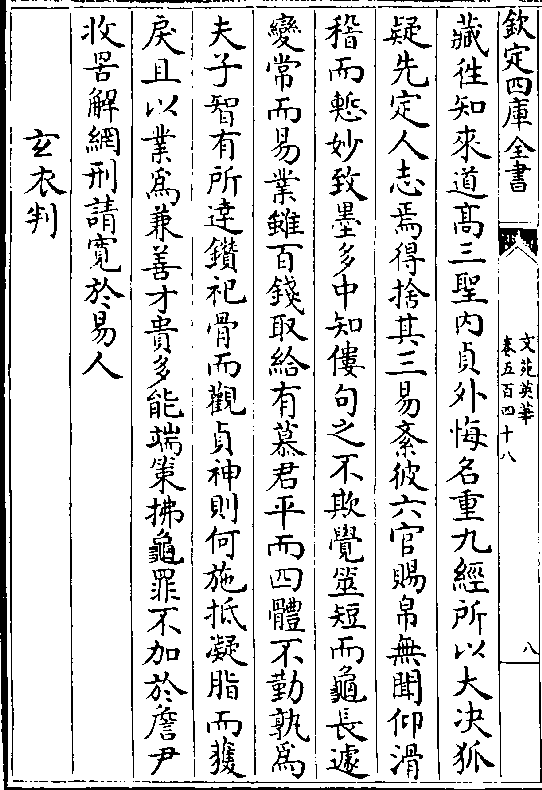 欽定四庫全書
文苑英華
卷五百四十八
八
藏徃知來道髙三聖内貞外悔名重九經所以大决狐
疑先定人志焉得捨其三易紊彼六官賜帛無聞仰滑
稽而慙妙致墨多中知僂句之不欺覺筮短而龜長遽
變常而易業雖百錢取給有慕君平而四體不勤孰為
夫子智有所逹鑽祀骨而觀貞神則何施抵凝脂而獲
戾且以業為兼善才貴多能端策拂龜罪不加於詹尹
收罟解網刑請寛於易人
玄衣判